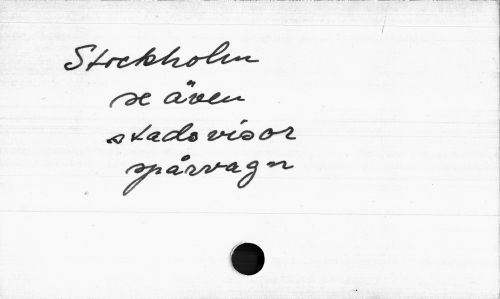 Stockholm
se även
stadsvisor
spårvagn